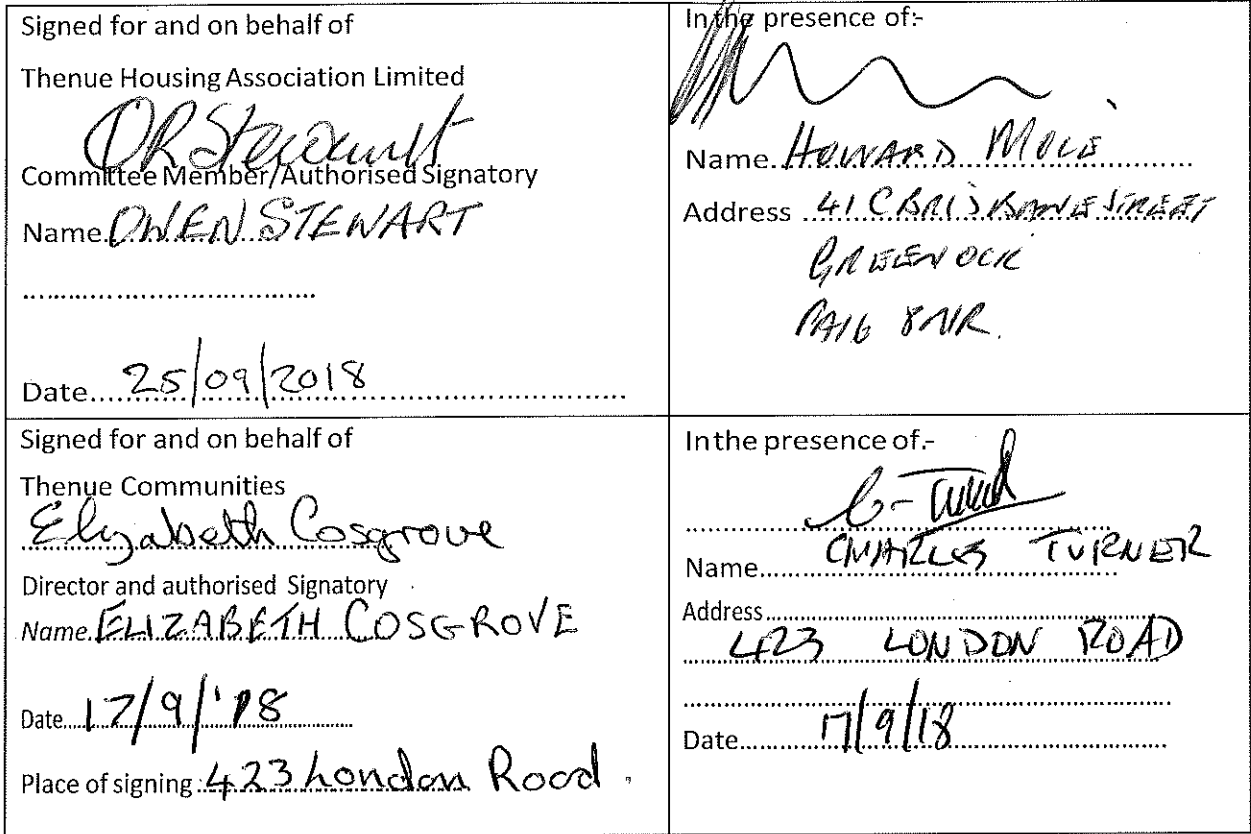 Signed for and on behalf of
Thenue Housing Association Limited
OR Stewart
Committee Member/Authorised Signatory
Name OWEN STEWART
Date 25/09/2018
In the presence of:-
Name HOWARD MOLE
Address 41C BRISBANE STREET
GREENOCK
PA16 8NR.
Signed for and on behalf of
Thenue Communities
Elizabeth Cosgrove
Director and authorised Signatory
Name ELIZABETH COSGROVE
Date 17/9/'18
Place of signing: 423 London Road.
In the presence of:-
Name CHARLES TURNER
Address
423 LONDON ROAD
Date 17/9/18